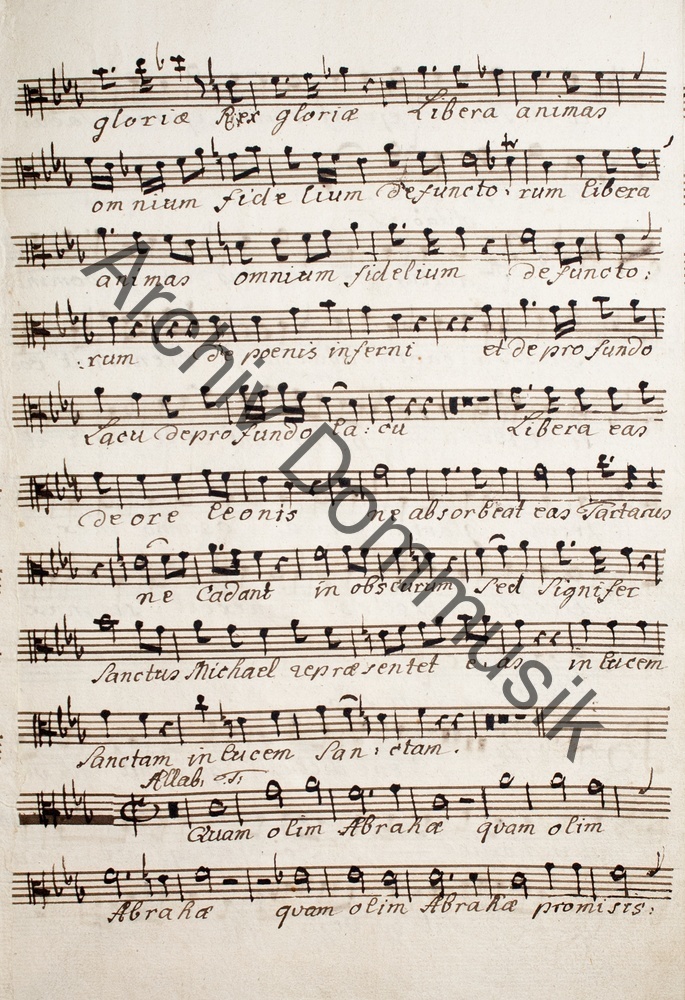 gloriæ Rex gloriæ Libera animas
omnium fidelium defuncto: rum libera
animas omnium fidelium defuncto:
:rum de poenis inferni et de profundo
Lacu de profundo la: cu Libera eas
de ore leonis ne absorbeat eas Tartarus
ne Cadant in obscurum sed signifer
Sanctus Michael repræsentet eas in lucem
Sanctam in lucem San: ctam.
Allab:
Quam olim Abrahæ quam olim
Abrahæ quam olim Abrahæ promisis:
Archiv Dommusik